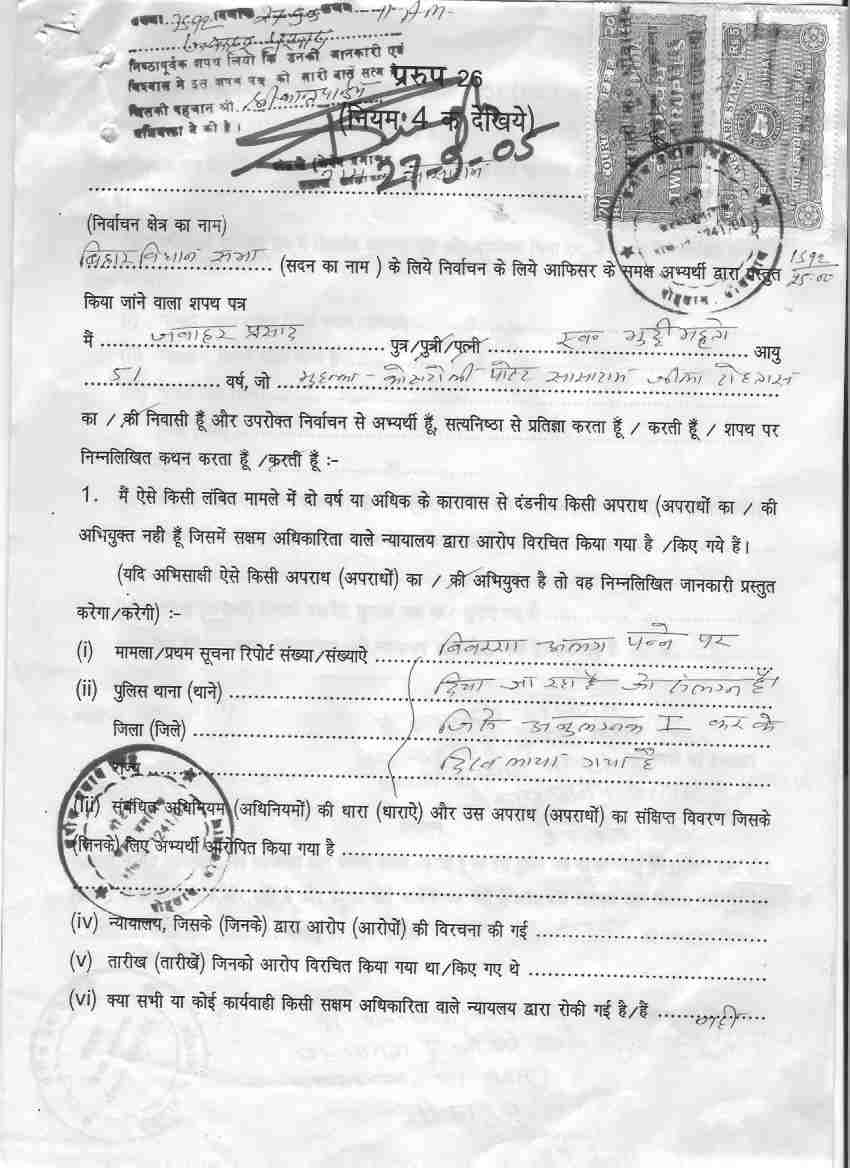 निष्ठापूर्वक शपथ लियो कि उनकी जानकारी एवं
विश्वास मे इस शपथ पत्र की सारी बातें सत्य है
प्ररुप 26
(नियम 4 क देखिये)
27-9-05
(निर्वाचन क्षेत्र का नाम)
बिहार विधान सभा (सदन का नाम ) के लिये निर्वाचन के लिये आफिसर के समक्ष अभ्यर्थी द्वारा प्रस्तुत
किया जांने वाला शपथ पत्र
मैं जवाहर प्रसाद पुत्र/पुत्री/पत्नी स्व० आयु
51 वर्ष, जो मुहल्ला - सासाराम जिला रोहतास
का / की निवासी हूँ और उपरोक्त निर्वाचन से अभ्यर्थी हूँ, सत्यनिष्ठा से प्रतिज्ञा करता हूँ / करती हूँ / शपथ पर
निम्नलिखित कथन करता हूँ /करती हूँ :-
1. मैं ऐसे किसी लंबित मामले में दो वर्ष या अधिक के कारावास से दंडनीय किसी अपराध (अपराधों का / की
अभियुक्त नही हूँ जिसमें सक्षम अधिकारिता वाले न्यायालय द्वारा आरोप विरचित किया गया है /किए गये हैं।
(यदि अभिसाक्षी ऐसे किसी अपराध (अपराधों) का / की अभियुक्त है तो वह निम्नलिखित जानकारी प्रस्तुत
करेगा/करेगी) :-
(i) मामला/प्रथम सूचना रिपोर्ट संख्या/संख्याऐ अलग पन्ने पर
(ii) पुलिस थाना (थाने) दिया जा रहा है जो संलग्न है।
जिला (जिले) जिसे I कर के
राज्य गया है
(iii) संबंधित अधिनियम (अधिनियमों) की धारा (धाराऐ) और उस अपराध (अपराधों) का संक्षिप्त विवरण जिसके
(जिनके) लिए अभ्यर्थी आरोपित किया गया है
(iv) न्यायालय, जिसके (जिनके) द्वारा आरोप (आरोपों) की विरचना की गई
(v) तारीख (तारीखें) जिनको आरोप विरचित किया गया था/किए गए थे
(vi) क्या सभी या कोई कार्यवाही किसी सक्षम अधिकारिता वाले न्यायलय द्वारा रोकी गई है/हैं नहीं